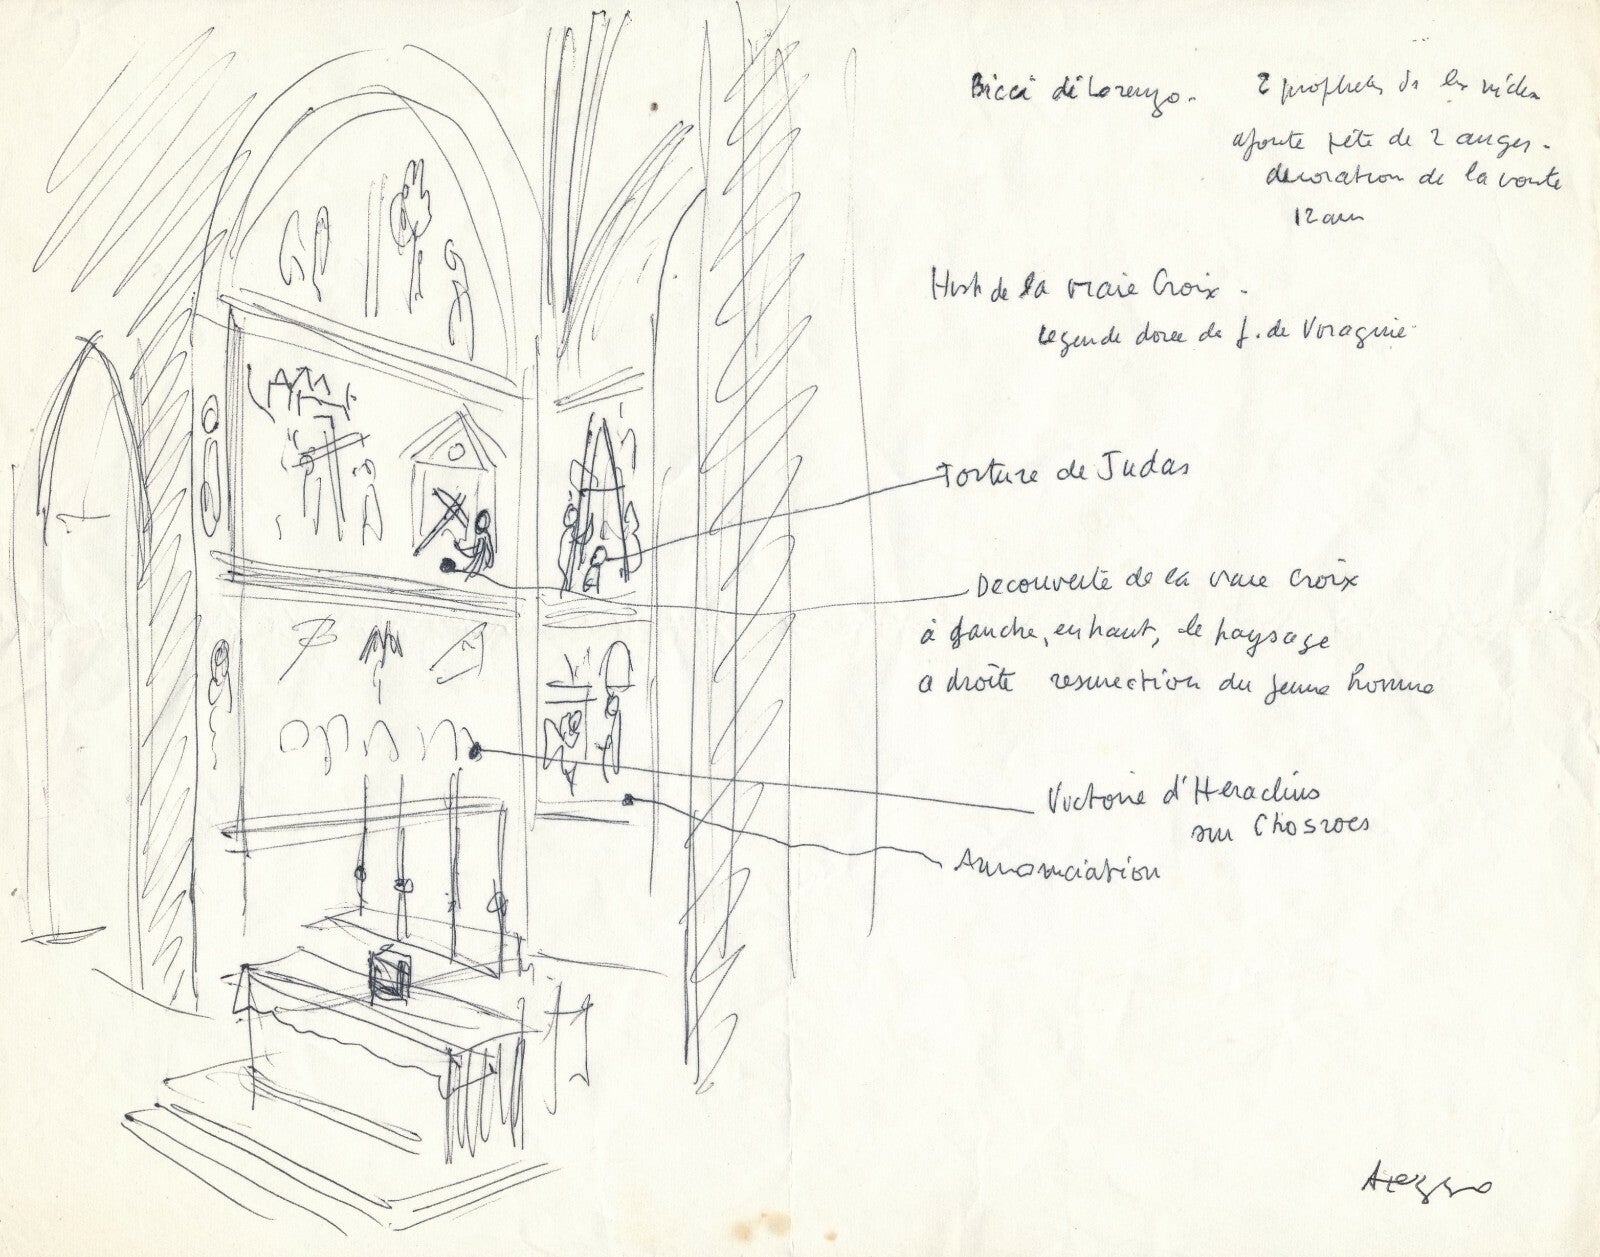 Bicci di Lorenzo. 2 prophetes ds les niches
ajoute tête de 2 anges.
decoration de la voute
12 ans
Hist de la vraie Croix.
Legende doree de J. de Voragine
Torture de Judas
Decouverte de la vraie Croix
à gauche, en haut, le paysage
a droite resurrection du jeune homme
Victoire d'Heraclius
sur Chosroes
Annonciation
Arezzo